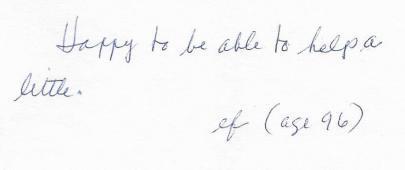 Happy to be able to help a
little.
ef (age 96)